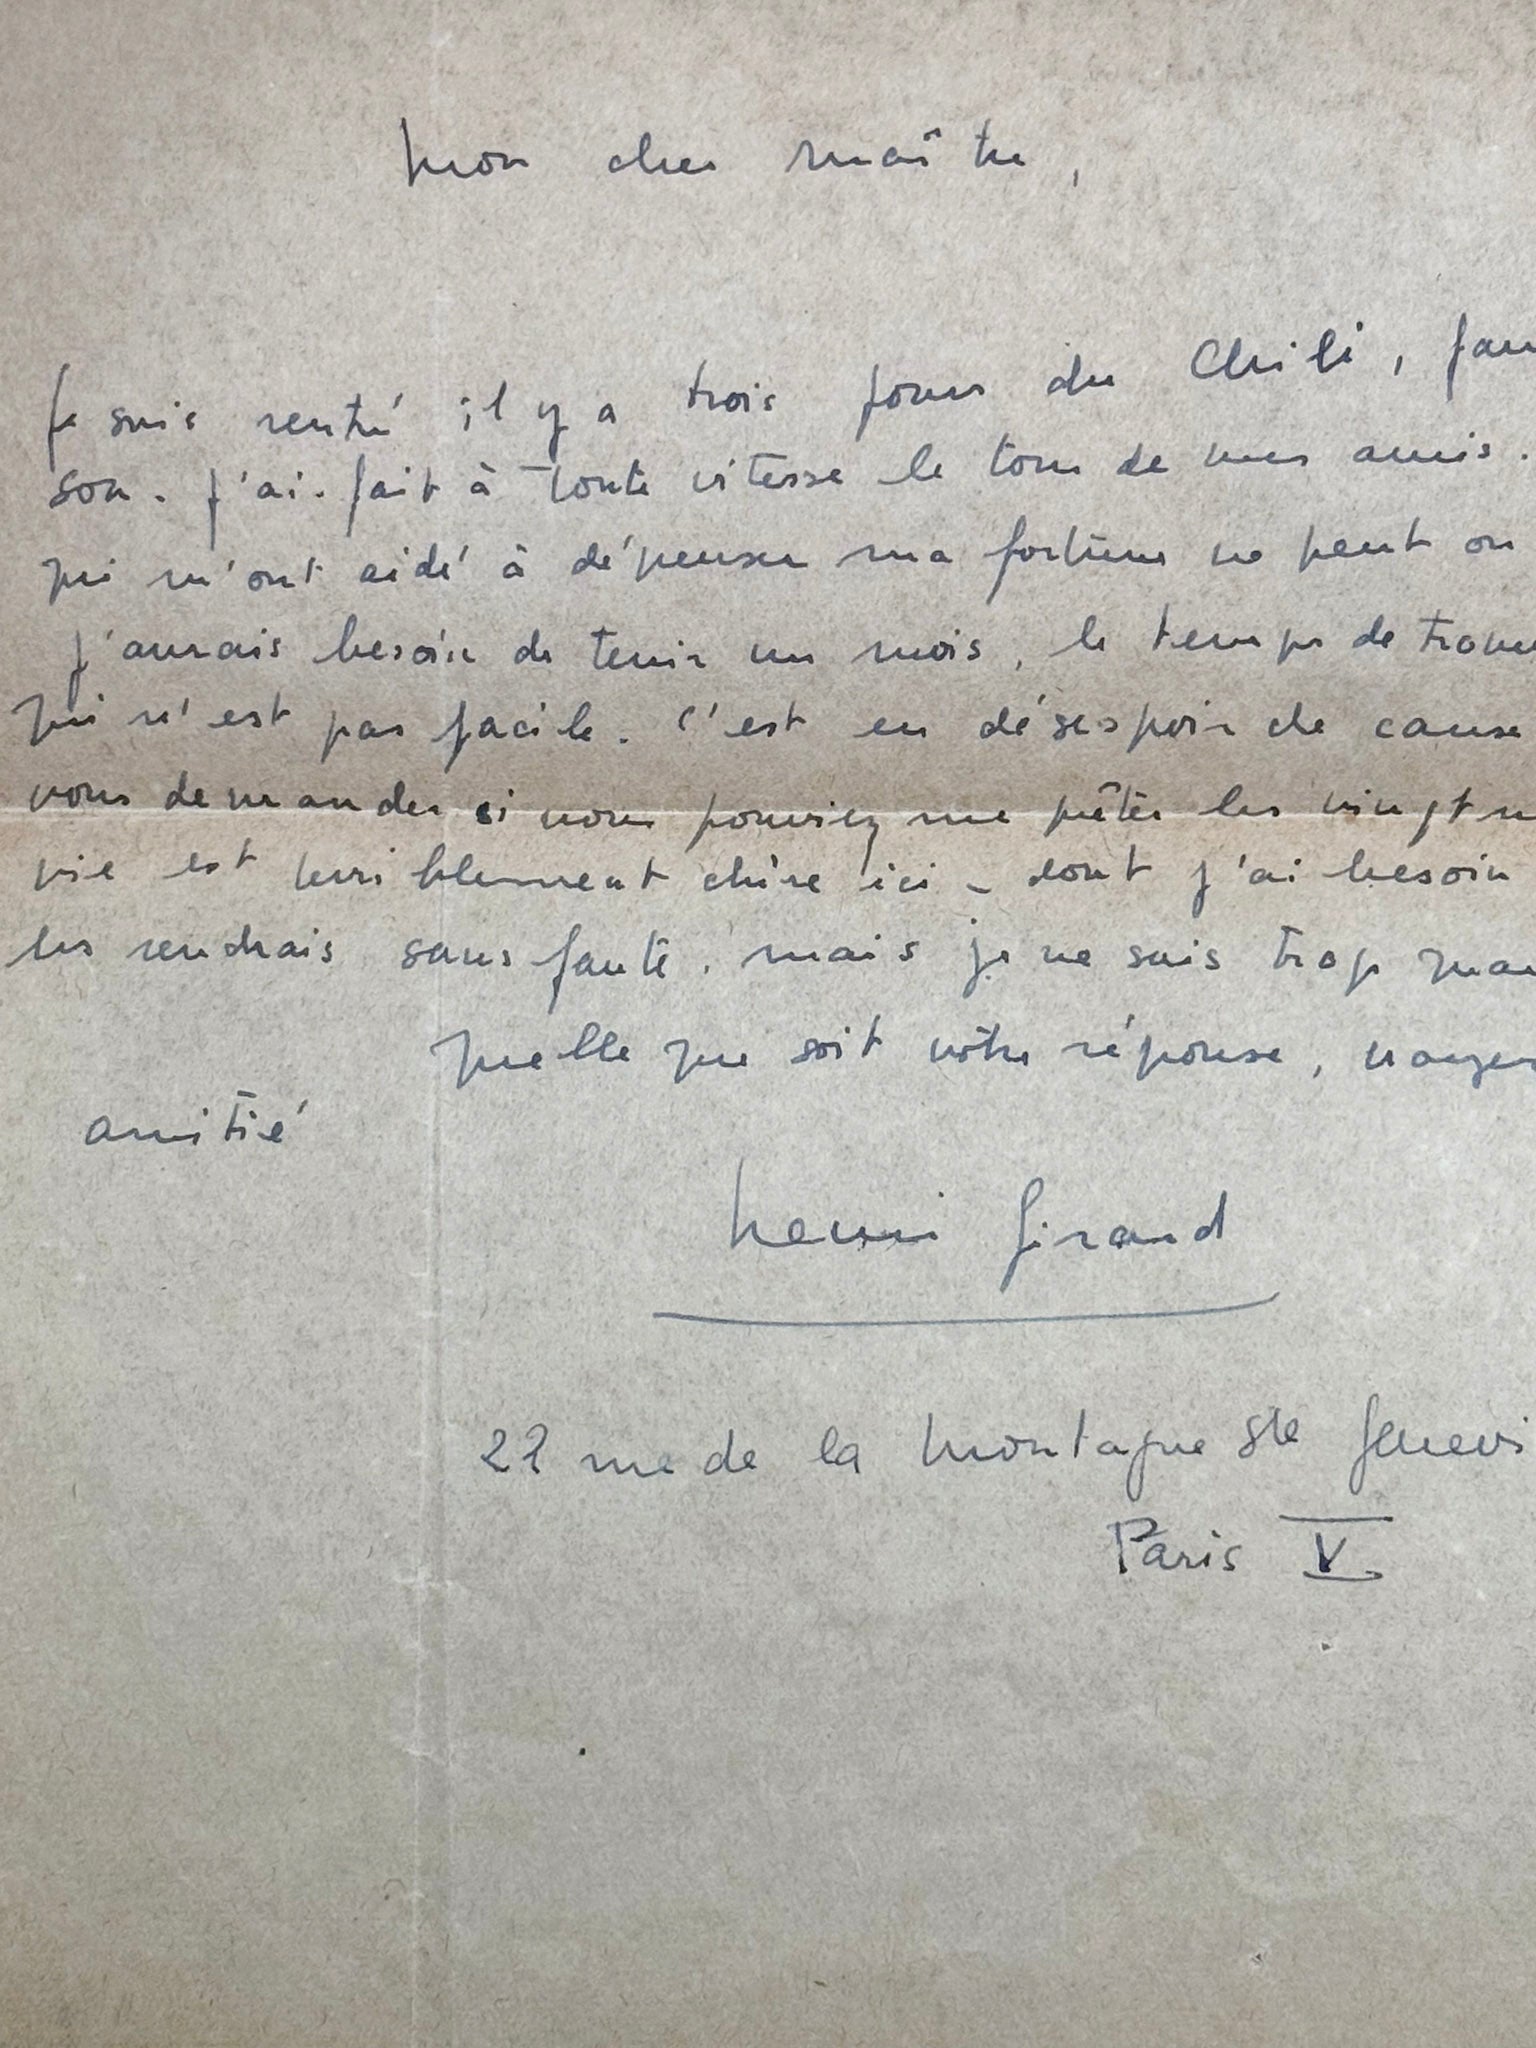 Mon cher maître,
Je suis rentré il y a trois jours du Chili,
son. J'ai fait à toute vitesse le tour de mes amis.
qui m'ont aidé à dépenser ma fortune ne peut on
J'aurais besoin de tenir un mois, le temps de trouve
qui n'est pas facile. C'est en désespoir de cause
vous demander si vous pourriez me prêter les vingt m
vie est terriblement chère ici - dont j'ai besoin
les rendrais sans faute. mais je ne suis trop
quelle que soit votre réponse, croyez
amitié
Henri Girard
22 rue de la Montagne Ste Genevi
Paris V